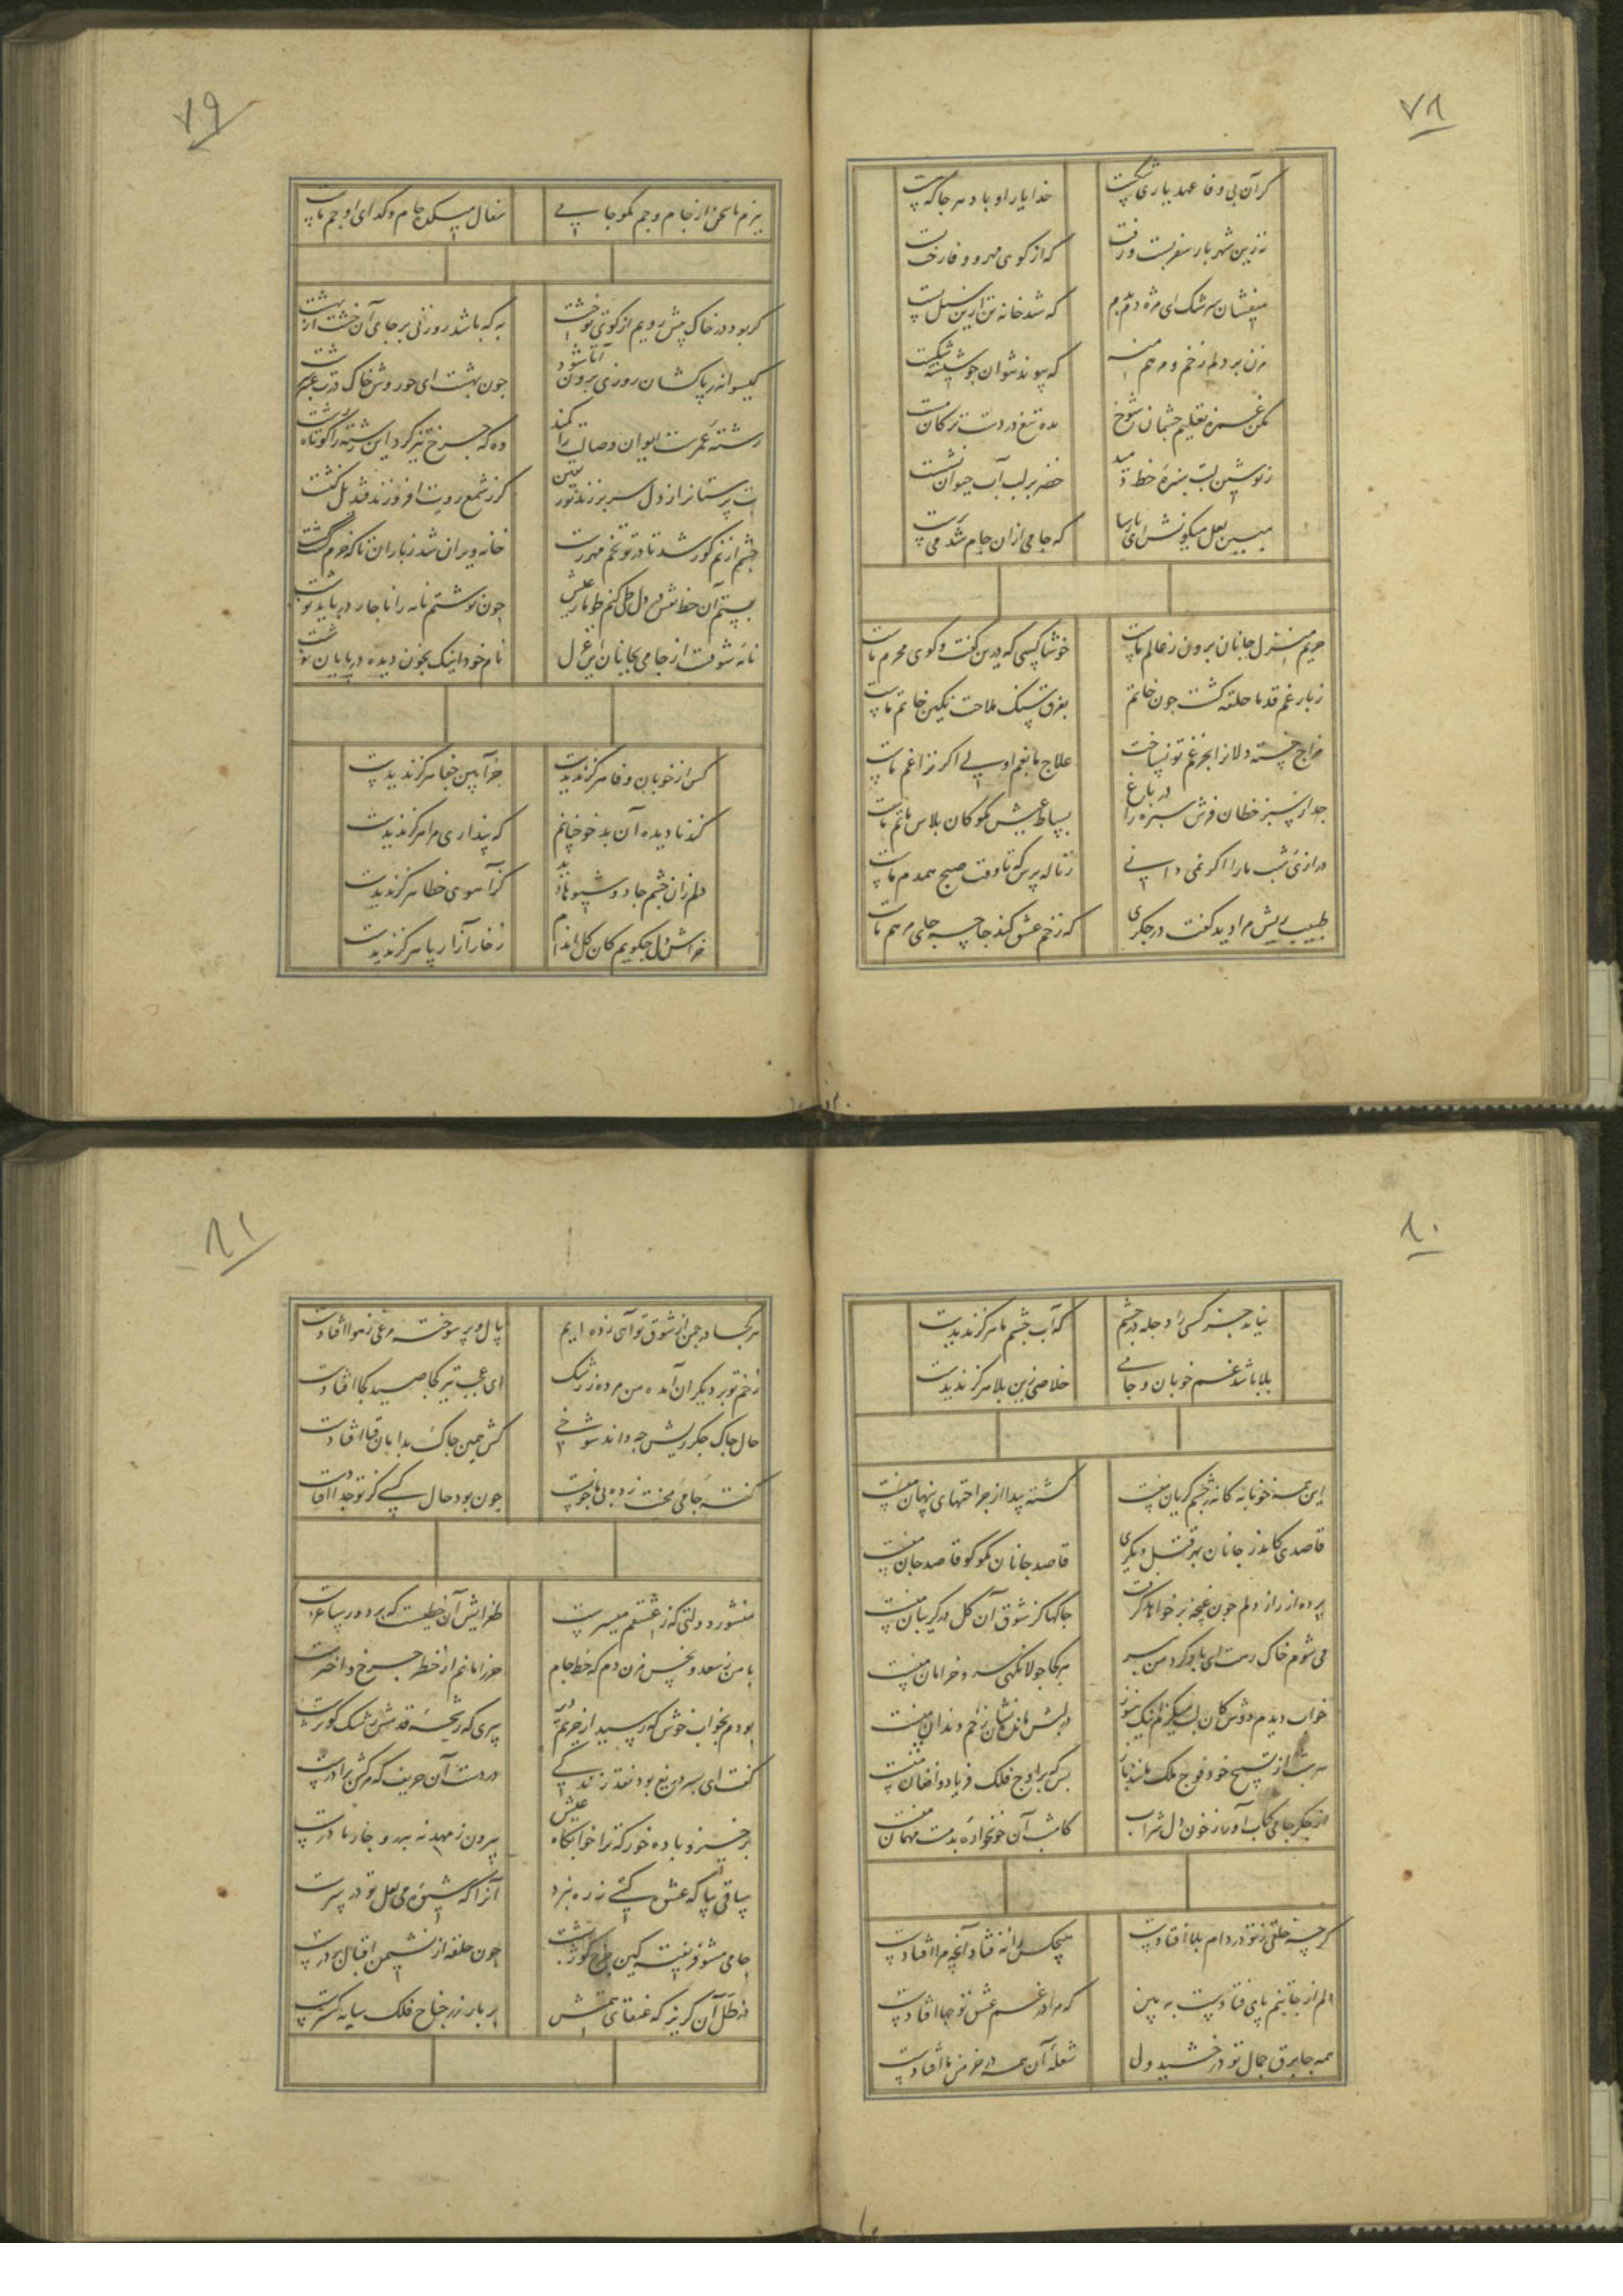 ۷۸
گر آن بی وفا عهد یاری شکست
خدا یار او باد هر جا که هست
نه زین شهر یار سفر بست و رفت
که از کوی مهر و وفا رخت بست
میفشان سرشک ای مژه دم بدم
که شد خانه تن ازین سیل پست
مزن بر دلم زخم و مرهم منه
که پیوند نتوان چو شیشه شکست
مکن غمزه تعلیم چشمان شوخ
مده تیغ در دست ترکان مست
ز نوشین لبت سبزه خط دمید
خضر بر لب آب حیوان نشست
مبین لعل میگونش ای پارسا
که جامی ازان جام شد می پرست
حریم منزل جانان برون ز عالم ماست
خوشا کسی که درین گفت و گوی محرم ماست
ز بار غم قد ما حلقه گشت چون خاتم
بفرق سنگ ملامت نگین خاتم ماست
مزاج خسته دلانرا بجز غم تو نساخت
علاج ما بغم اولی اگر ترا غم ماست
جدا ز سبز خطان فرش سبزه را در باغ
بساط عیش مگو کان پلاس ماتم ماست
درازی شب ما را اگر نمی دانی
ز ناله پرس که تا وقت صبح همدم ماست
طبیب ریش مرا دید گفت در جگری
که زخم عشق کند جا چه جای مرهم ماست
۷۹
بزم ما سخن از جام و جم مگو جامی
سفال میکده جام و گدای او جم ماست
گر بود در خاک پیش رویم از کوی تو خشت
به که باشد روزنی بر جای آن خشت از بهشت
گیسوانت را پاکشان روزی برون آ تا شود
چون بهشت ای حوروش خاک درت عنبر سرشت
رشته عمرست ایوان وصالت را کمند
وه که چرخ تیز گرد این رشته را کوتاه رشت
بت پرستانرا ز دل سر بر زند نور یقین
گر ز شمع رویت افروزند قندیل کنشت
چشم از نم کور شد تا در تو تخم مهر رست
خانه ویران شد ز باران تا که خرم گشت کشت
چون نوشتم نامه را ناچار در باید نوشت
نامه شوقست از جامی بجانان این غزل
نام خود اینک بخون دیده در پایان نوشت
کس از خوبان وفا هرگز ندیدست
جز آیین جفا هرگز ندیدست
کند نادیده آن بدخو چنانم
که پنداری مرا هرگز ندیدست
دلم زان چشم جادو شیوها دید
کز آهوی خطا هرگز ندیدست
خراش دل چگویم کان گل اندام
ز خار آزار پا هرگز ندیدست
۸۰
نیاید جز کسی را دجله در چشم
که آب چشم ما هرگز ندیدست
بلا باشد غم خوبان و جامی
خلاصی زین بلا هرگز ندیدست
این همه خونابه کانه ز چشم گریان منست
گشته پیدا از جراحتهای پنهان منست
قاصدی کاید ز جانان بهر قتل دیگری
قاصد جانان مگو کو قاصد جان منست
پرده از راز دلم چون غنچه بر خواهد گرفت
چاکها کز شوق آن گل در گریبان منست
می شوم خاک رهت ای باد گرد من ببر
هر کجا جولانگه سرو خرامان منست
خواب دیدم دوش کان لب میگزم اینک هنوز
بر لبش مانده نشان زخم دندان منست
هر شب از تسبیح خود فوج ملک مانند باز
بس که بر اوج فلک فریاد و افغان منست
از جگر جامی کباب آور ز خون دل شراب
کامشب آن خونخواره بدمست مهمان منست
گر چه خلقی ز تو در دام بلا افتادست
هیچکس را نه فتاد آنچه مرا افتادست
دلم از جا ببر پای فتادست به بین
که مرا در غم عشق تو چها افتادست
همه جا برق جمال تو درخشید ولی
شعله آن همه در خرمن ما افتادست
۸۱
هر کجا در چمن از شوق تو آهی زده ایم
بال و پر سوخته مرغی ز هوا افتادست
زخم تو بر دیگران آمده من مرده ز رشک
ای عجب تیر کجا صید کجا افتادست
حال چاک جگر ریش چه داند شوخی
کش همین چاک بدامان قبا افتادست
گفته جامی محنت زده بی ما چونست
چون بود حال کسی کز تو جدا افتادست
منشور دولتی که ز عشقم میسرست
طغرایش آن خطیست که بر دور ساغرست
با من ز سعد و نحس مزن دم که خط جام
حرز امانم از خطر چرخ و اخترست
بودم بخواب خوش که رسید از حریم دیر
پیری که رشحه قدحش رشک کوثرست
گفت ای پسر دریغ بود نقد زندگی
در دست آن حریف که مرگش برادرست
برخیز و باده خور که ترا خوابگاه عیش
بیرون ز مهد نه پدر و چار مادرست
ساقی بیا که عشق کسی ره نبرد
آنرا که شور می لعل تو در سرست
جامی مشو فریفته کین چرخ گوژپشت
چون حلقه از نشیمن اقبال بر درست
در ظل آن گریز که عنقای همتش
پر بار زر جناح فلک سایه گسترست